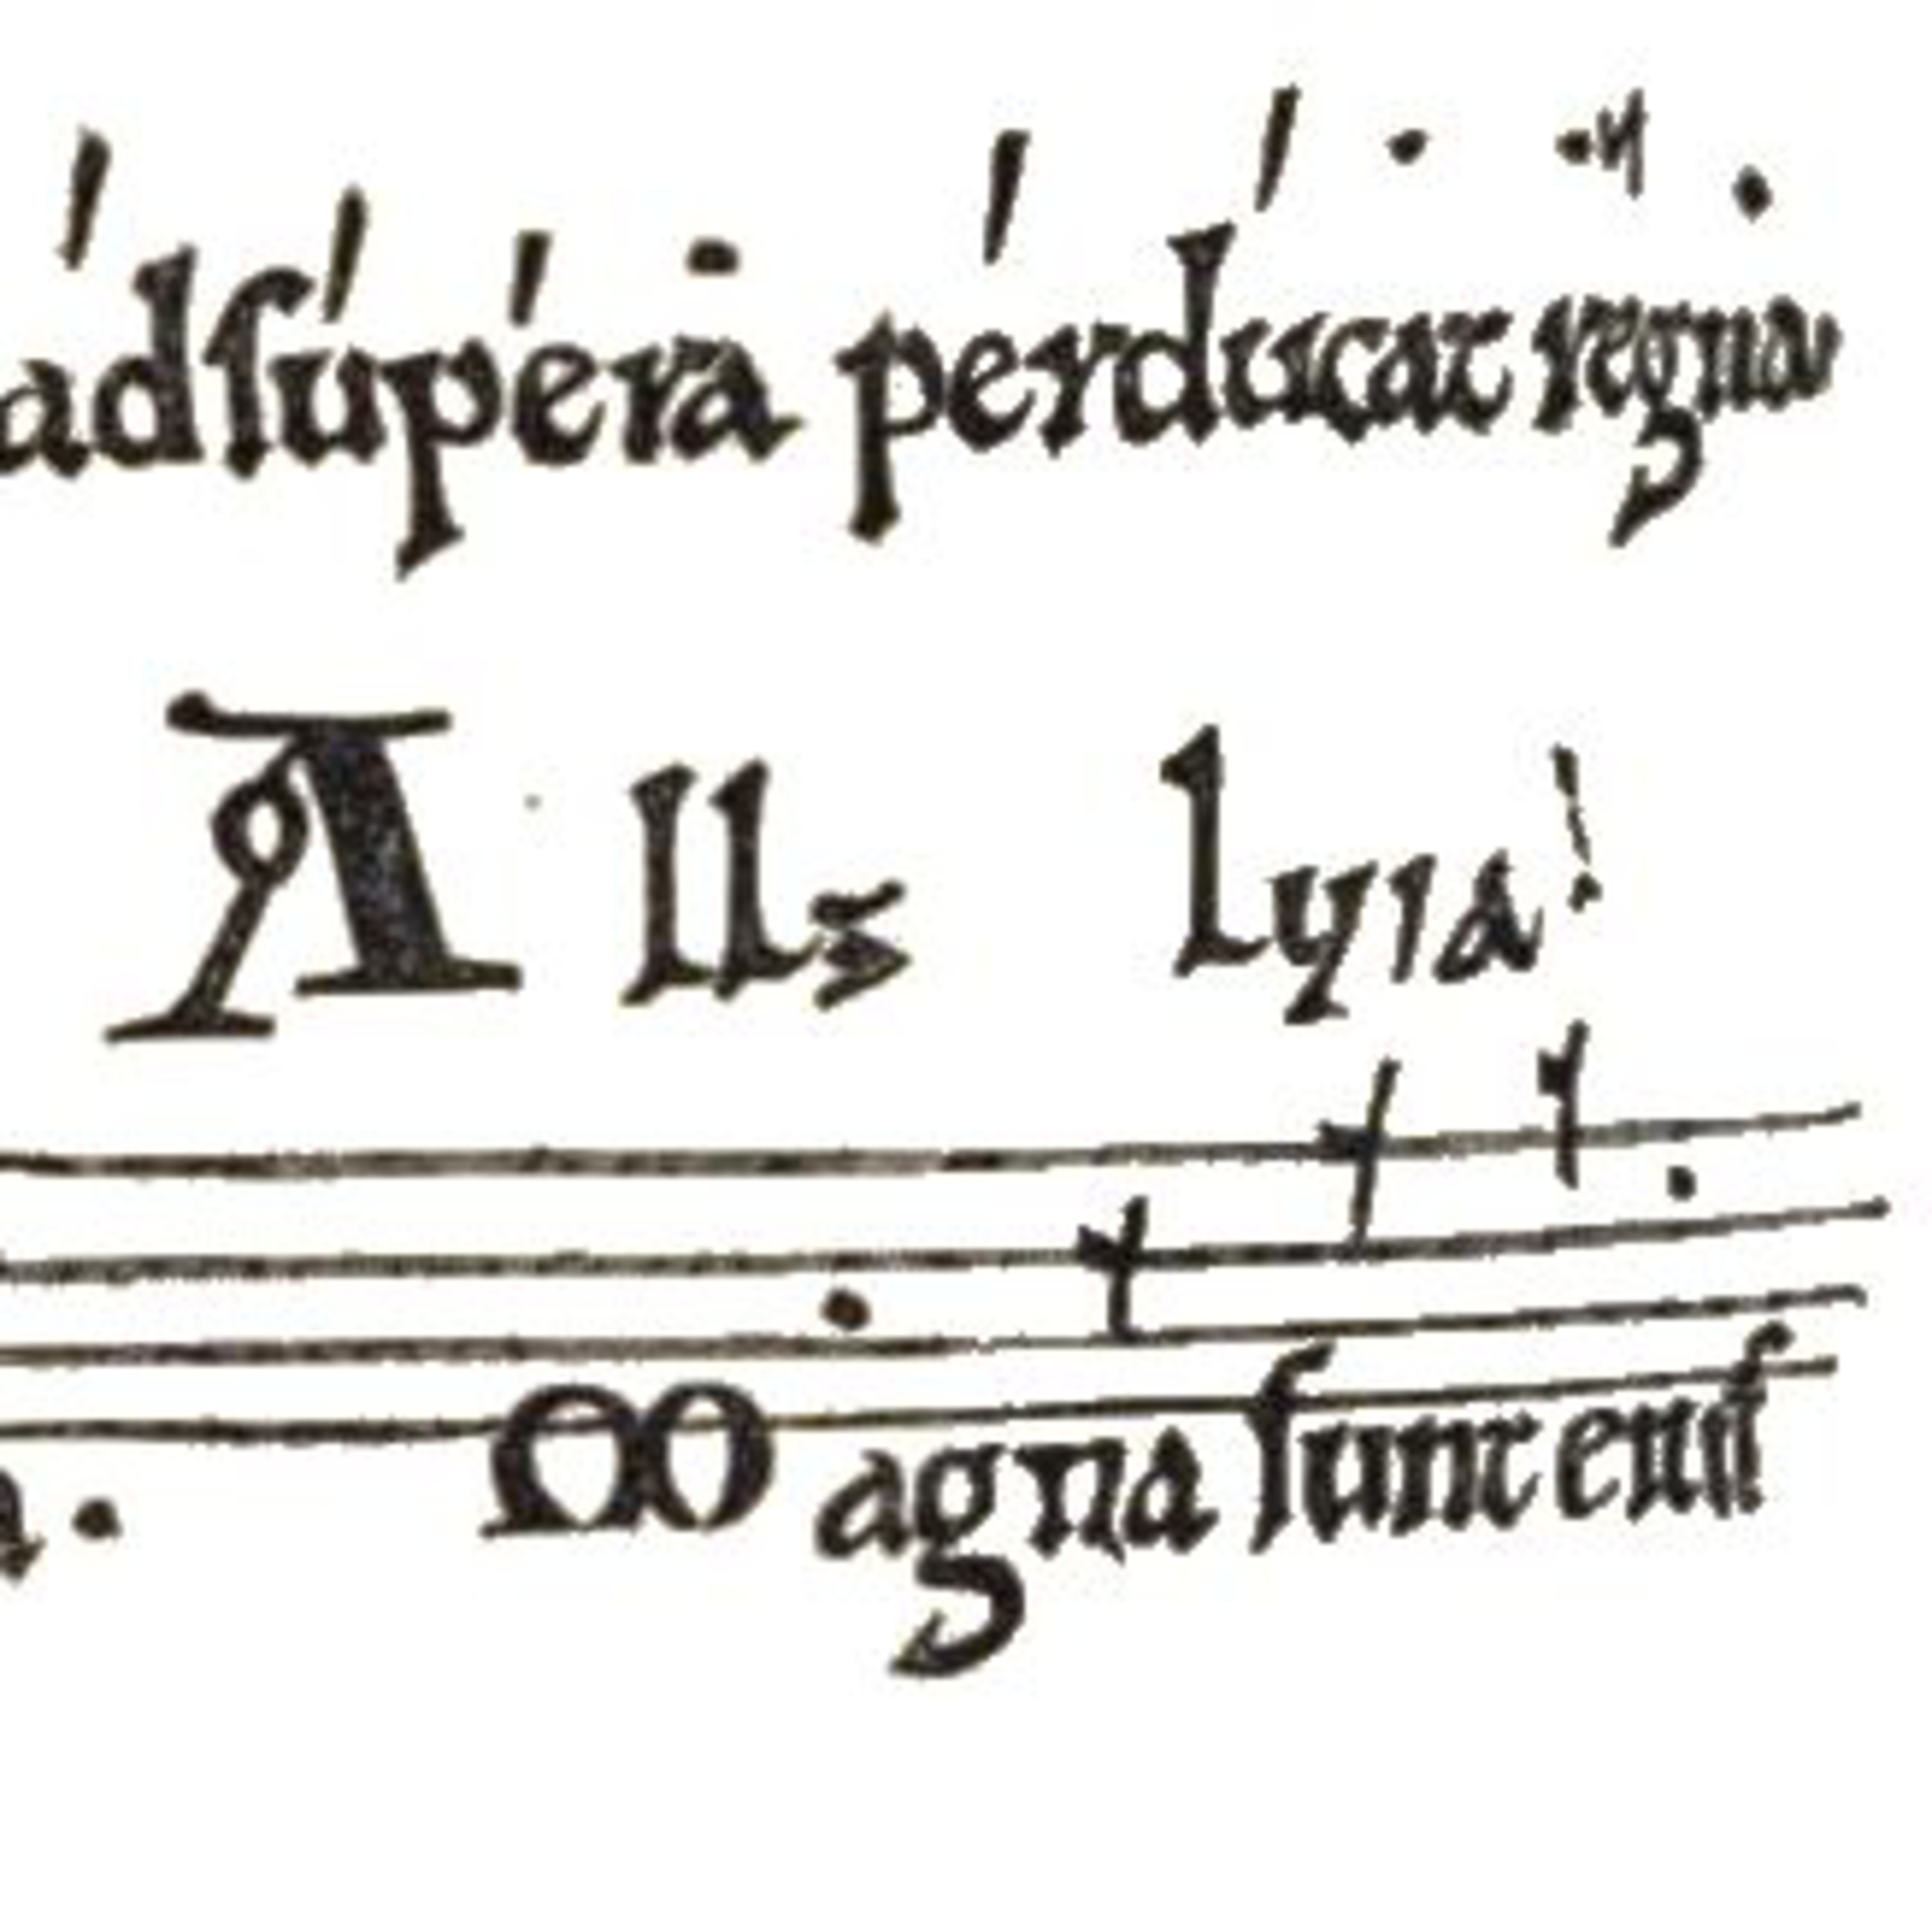 adsupera perducat regna
All lyia
a. Magna sunt eius